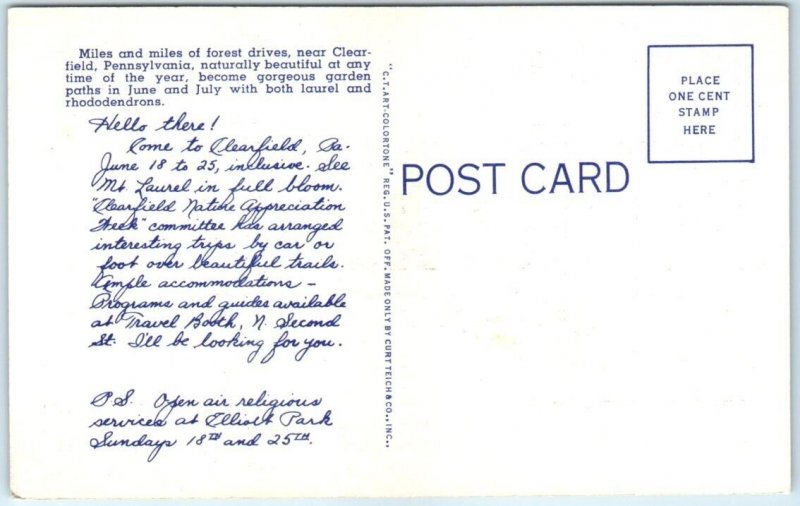 Miles and miles of forest drives, near Clear-
field, Pennsylvania, naturally beautiful at any
time of the year, become gorgeous garden
paths in June and July with both laurel and
rhododendrons.
Hello there!
Come to Clearfield, Pa.
June 18 to 25, inclusive. See
Mt. Laurel in full bloom.
"Clearfield Nature Appreciation
Week" committee has arranged
interesting trips by car or
foot over beautiful trails.
Ample accommodations –
Programs and guides available
at Travel Booth, N. Second
St. I'll be looking for you.
P.S. Open air religious
services at Elliott Park
Sundays 18TH and 25TH.
"C.T. ART-COLORTONE" REG. U.S. PAT. OFF. MADE ONLY BY CURT TEICH & CO., INC.,
POST CARD
PLACE
ONE CENT
STAMP
HERE